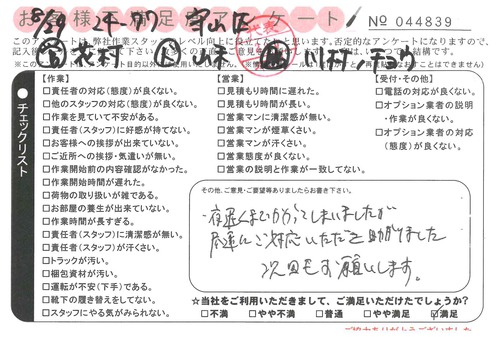 お客様 満足 ケート!
No 044839
8/29 2年
このアンケートは、弊社作業スタッフ
レベル向上に役立てたいと思います。否定的なアンケートになりますので、
【作業】
□責任者の対応(態度)が良くない。
□他のスタッフの対応(態度)が良くない。
□作業を見ていて不安がある。
□責任者(スタッフ)に好感が持てない。
□お客様への挨拶が出来ていない。
□ご近所への挨拶・気遣いが無い。
□作業開始前の内容確認がなかった。
□作業開始時間が遅れた。
□荷物の取り扱いが雑である。
□お部屋の養生が出来ていない。
□作業時間が長すぎる。
□責任者(スタッフ)に清潔感が無い。
□責任者(スタッフ)が汗くさい。
□トラックが汚い。
□梱包資材が汚い。
□運転が不安(下手)である。
□靴下の履き替えをしてない。
□スタッフにやる気がみられない。
【営業】
□見積もり時間に遅れた。
□見積もり時間が長い。
□営業マンに清潔感が無い。
□営業マンが煙草くさい。
□営業マンが汗くさい。
□営業態度が良くない。
□営業の説明と作業が一致してない。
【受付・その他】
□電話の対応が良くない。
□オプション業者の説明
・作業が良くない。
□オプション業者の対応
(態度)が良くない。
チェックリスト
その他、ご意見・ご要望等ありましたらお書き下さい。
夜遅くまでかかってしまいましたが
ご対応いただき助かりました
次回もお願いします。
☆当社をご利用いただきまして、ご満足いただけてしょうか?
□不満 □やや不満 □普通 □やや満足 ☑満足
ご協力ありがとうございました